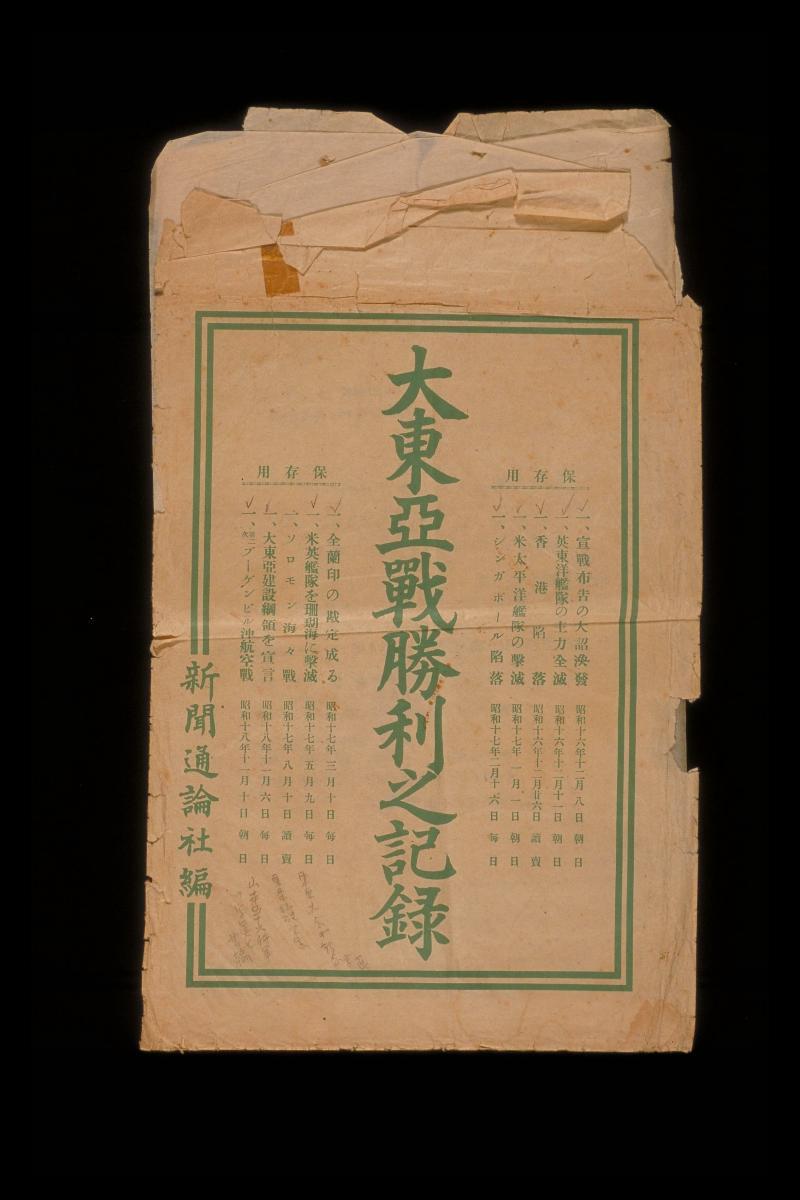 大東亞戰勝利之記錄
保存用
一、宣戰布告の大詔渙發 昭和十六年十二月八日 朝日
一、英東洋艦隊の主力全滅 昭和十六年十二月十一日 朝日
一、香港陷落 昭和十六年十二月廿六日 讀賣
一、米太平洋艦隊の擊滅 昭和十七年一月一日 朝日
一、シンガポール陷落 昭和十七年二月十六日 每日
保存用
一、全蘭印の戡定成る 昭和十七年三月十日 每日
一、米英艦隊を珊瑚海に擊滅 昭和十七年五月九日 每日
一、ソロモン海々戰 昭和十七年八月十日 讀賣
一、大東亞建設綱領を宣言 昭和十八年十一月六日 每日
一、第二次ブーゲンビル沖航空戰 昭和十八年十一月十日 朝日
新聞通論社編